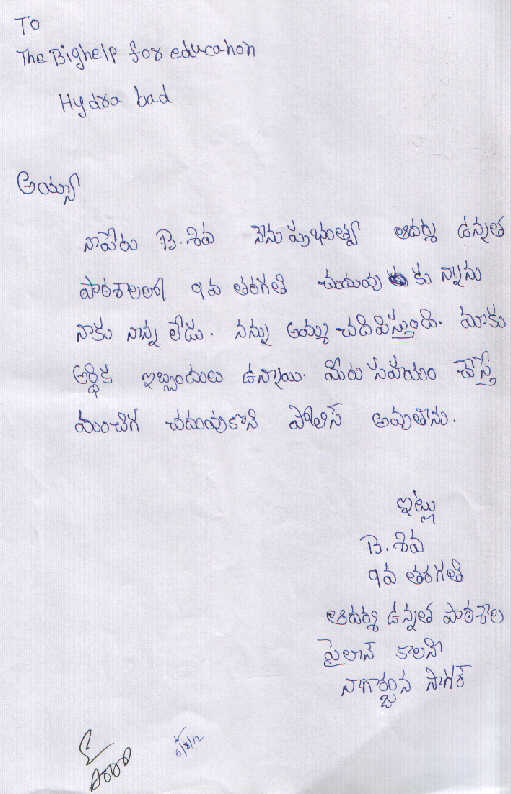 To
The Bighelp for education
Hydra bad
అయ్యా
నాపేరు B. శివ నేను ప్రభుత్వ ఆదర్శ ఉన్నత
పాఠశాలలో 9వ తరగతి చదువు కు న్నాను
నాకు నాన్న లేడు. నన్ను అమ్మ చదివిస్తుంది. మాకు
ఆర్థిక ఇబ్బందులు ఉన్నాయి. మీరు సహాయం చేస్తే
మంచిగ చదువుకొని పోలిస్ అవుతాను.
ఇట్లు
B. శివ
9వ తరగతి
ఆదర్శ ఉన్నత పాఠశాల
పైలాన్ కాలని
నాగార్జున సాగర్